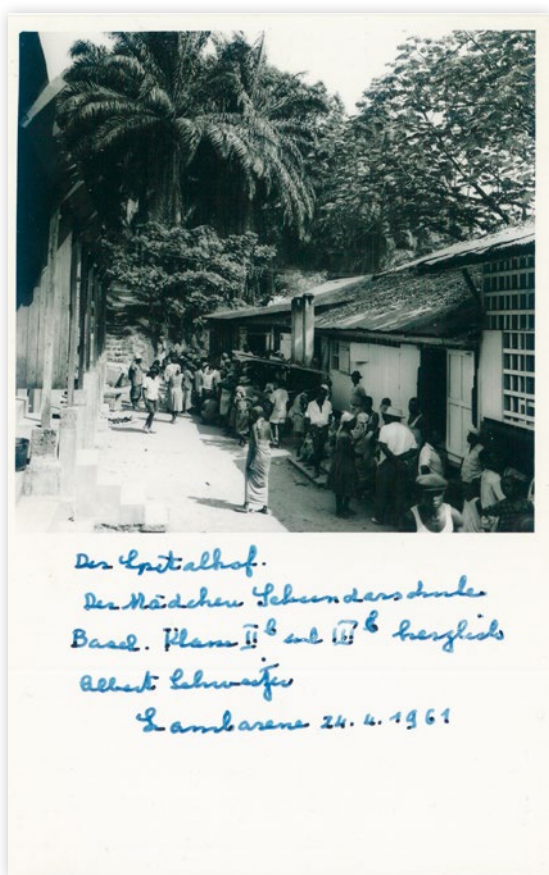 Der Spitalhof.
Der Mädchen Sekundarschule
Basel. Klasse IIb und IIIb herzlich
Albert Schweitzer
Lambarene 24.4.1961